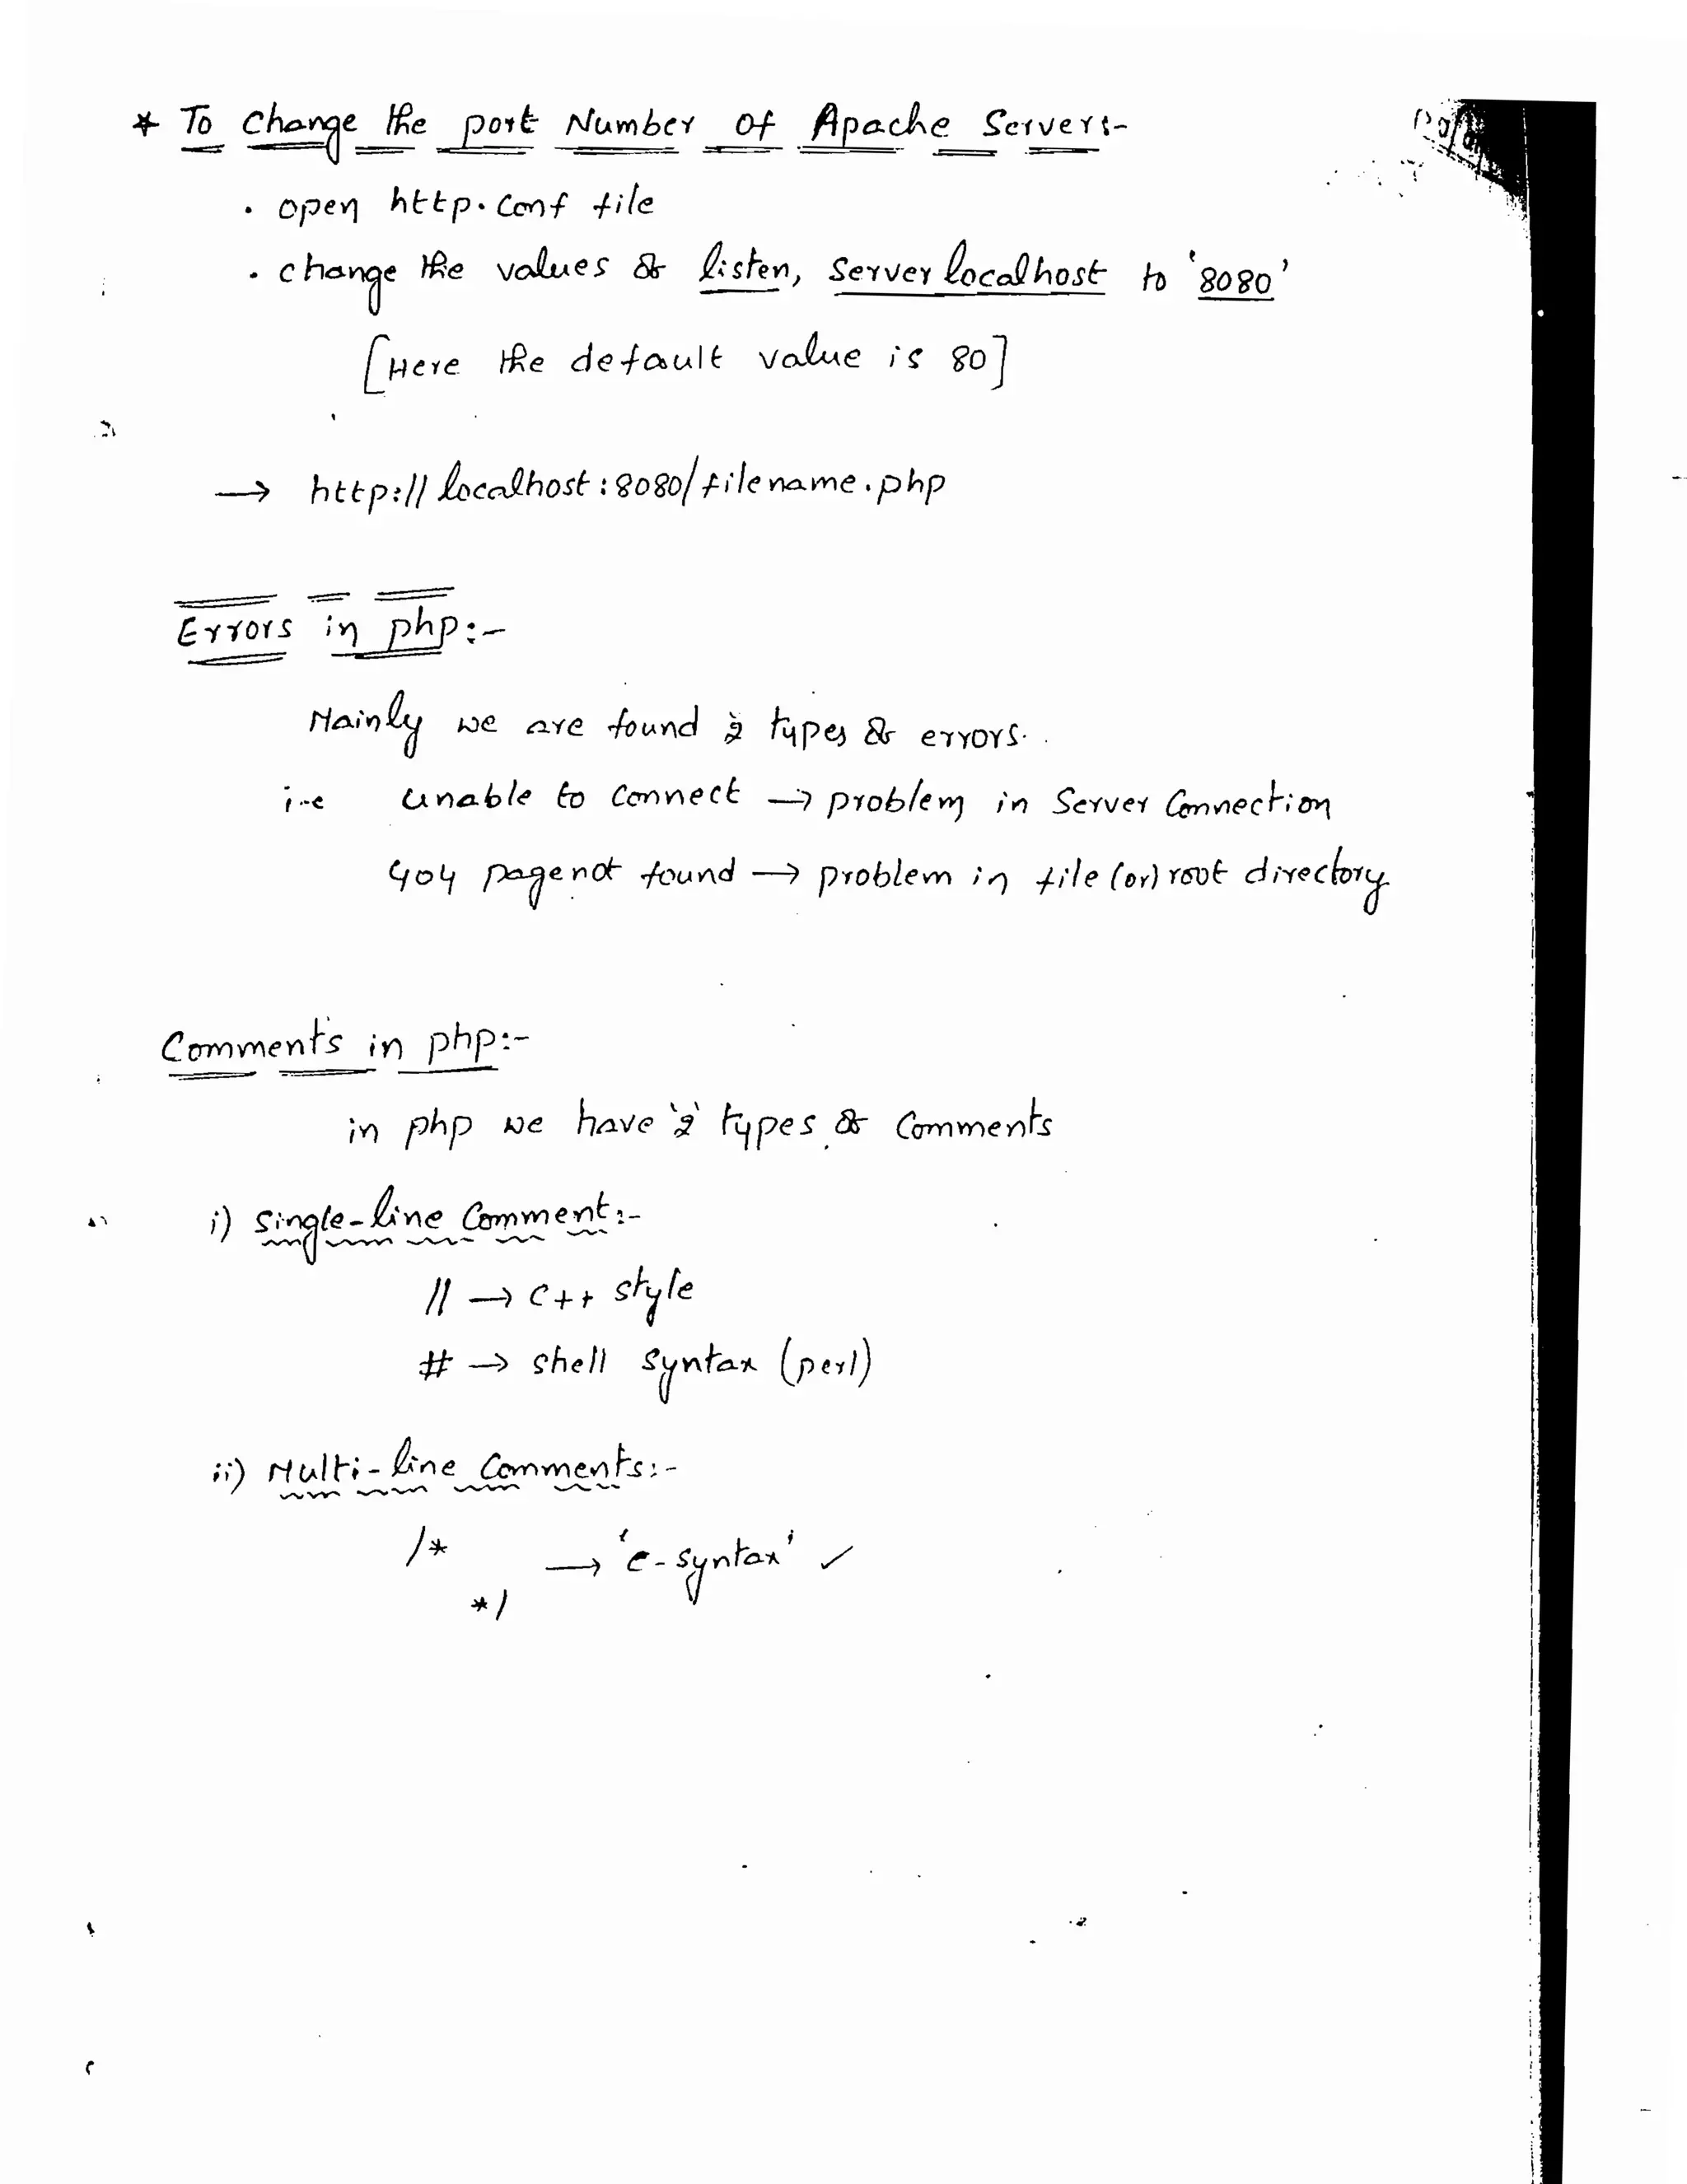 * To change the port Number of Apache Server:-
. open http.conf file
. change the values of listen, server localhost to '8080'
[Here the default value is 80]
→ http://localhost:8080/filename.php
Errors in php:-
Mainly we are found 2 types of errors.
i.e unable to connect → problem in Server Connection
404 page not found → problem in file (or) root directory
Comments in php:-
in php we have '2' types of Comments
i) Single-line Comment:-
// → C++ style
# → shell syntax (perl)
ii) Multi-line Comments:-
/*
→ 'c-syntax' ✓
*/